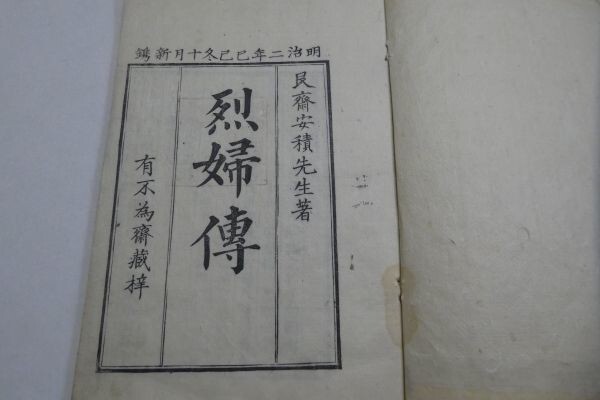 明治二年己巳冬十月新鐫
艮齋安積先生著
烈婦傳
有不為齋藏梓